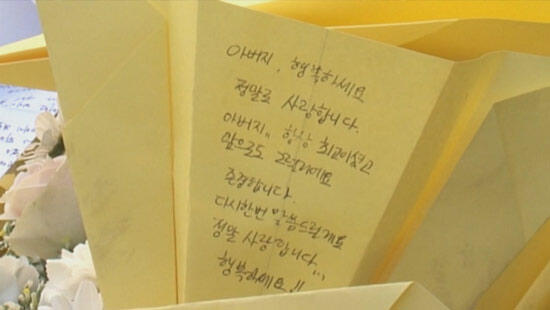 아버지, 행복하세요
정말로 사랑합니다.
아버지.. 항상 최고이셨고
앞으로도 그럴거에요
존경합니다.
다시한번 말씀드릴게요
정말 사랑합니다...
행복하세요!!